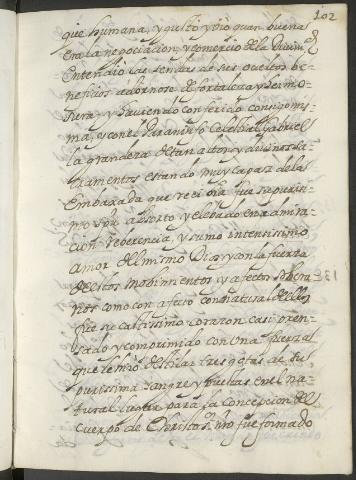 102
que humana, y gustó y vio quan buena
era la negociacion, y comercio de la Divini.d
Entendio las sendas de sus ocultos be-
neficios adornose de fortaleza y hermo-
sura: y haviendo conferido consigo mis-
ma, y con el Paraninfo Celestial Gabriel
la grandeza de tan altos y divinos Sa-
cramentos estando muy capaz de la
Embaxada que recivia, fue su puriss-
mo spu absorto y elebado en admira-
cion, reverencia, y sumo intensissimo
Amor del mismo Dios, y con la fuerza
de estos mobimientos y afectos sobera-
nos como con afecto connatural de ellos
fue su castissimo corazon casi pren-
sado y comprimido con una fuerza
que le hizo destilar tres gotas de su
purissima sangre y puestas en el na-
tural lugar para la Concepcion del
Cuerpo de Christo S. nro fue formado